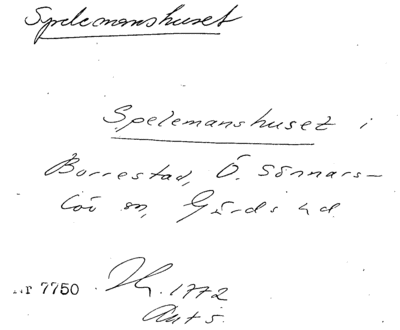 Spelemanshuset
Spelemanshuset i
Borrestad, Ö. Sönnars-
löv sn, Gärds hd
nr 7750 . 1772
Ant s.